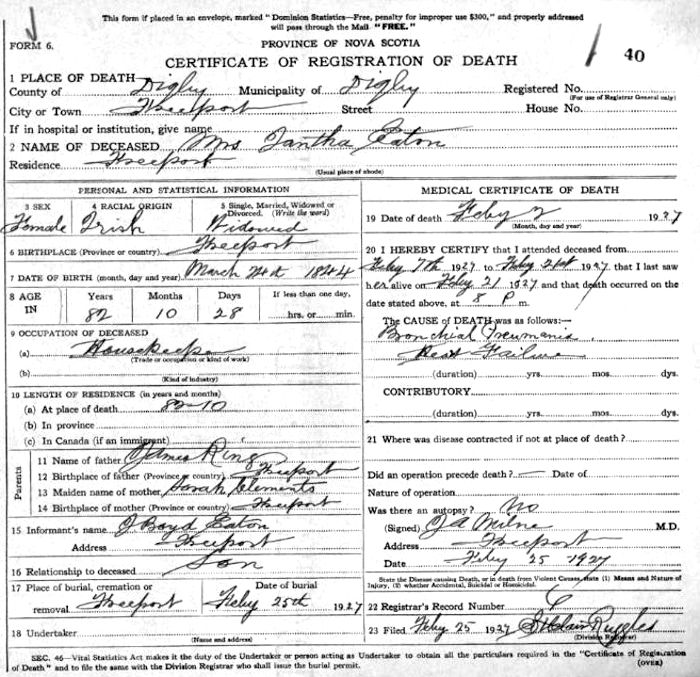 This form if placed in an envelope, marked "Dominion Statistics—Free, penalty for improper use $300," and properly addressed
will pass through the Mail "FREE."
FORM 6.
PROVINCE OF NOVA SCOTIA
40
CERTIFICATE OF REGISTRATION OF DEATH
1 PLACE OF DEATH
County of Digby Municipality of Digby Registered No.
(For use of Registrar General only)
City or Town Freeport Street House No.
If in hospital or institution, give name
2 NAME OF DECEASED Mrs Iantha Eaton
Residence Freeport
(Usual place of abode)
PERSONAL AND STATISTICAL INFORMATION
3 SEX 4 RACIAL ORIGIN 5 Single, Married, Widowed or Divorced. (Write the word)
Female Irish Widowed
6 BIRTHPLACE (Province or country) Freeport
7 DATE OF BIRTH (month, day and year) March 24th 1844
8 AGE IN Years Months Days If less than one day,
82 10 28 hrs. or min.
9 OCCUPATION OF DECEASED
(a) Housekeeper
(Trade or occupation or kind of work)
(b)
(Kind of industry)
10 LENGTH OF RESIDENCE (in years and months)
(a) At place of death 82-10
(b) In province
(c) In Canada (if an immigrant)
Parents
11 Name of father James Ring
12 Birthplace of father (Province or country) Freeport
13 Maiden name of mother Sarah Clements
14 Birthplace of mother (Province or country) Freeport
15 Informant's name J Boyd Eaton
Address Freeport
16 Relationship to deceased Son
17 Place of burial, cremation or removal Freeport Date of burial Feby 25th 1927
18 Undertaker
(Name and address)
MEDICAL CERTIFICATE OF DEATH
19 Date of death Feby 2 1927
(Month, day and year)
20 I HEREBY CERTIFY that I attended deceased from
Feby 7th 1927 to Feby 21st 1927 that I last saw
her alive on Feby 21 1927 and that death occurred on the
date stated above, at 8 P m.
The CAUSE OF DEATH was as follows:—
Bronchial Pneumonia
Heart Failure
(duration) yrs. mos. dys.
CONTRIBUTORY
(duration) yrs. mos. dys.
21 Where was disease contracted if not at place of death?
Did an operation precede death? — Date of
Nature of operation
Was there an autopsy? No
(Signed) J A Milne M.D.
Address Freeport
Date Feby 25 1927
State the Disease causing Death, or in death from Violent Causes, state (1) Means and Nature of
Injury, (2) whether Accidental, Suicidal or Homicidal.
22 Registrar's Record Number 6
23 Filed Feby 25 1927 StClair Ruggles
(Division Registrar)
SEC. 46—Vital Statistics Act makes it the duty of the Undertaker or person acting as Undertaker to obtain all the particulars required in the "Certificate of Registration
of Death" and to file the same with the Division Registrar who shall issue the burial permit.
(OVER)